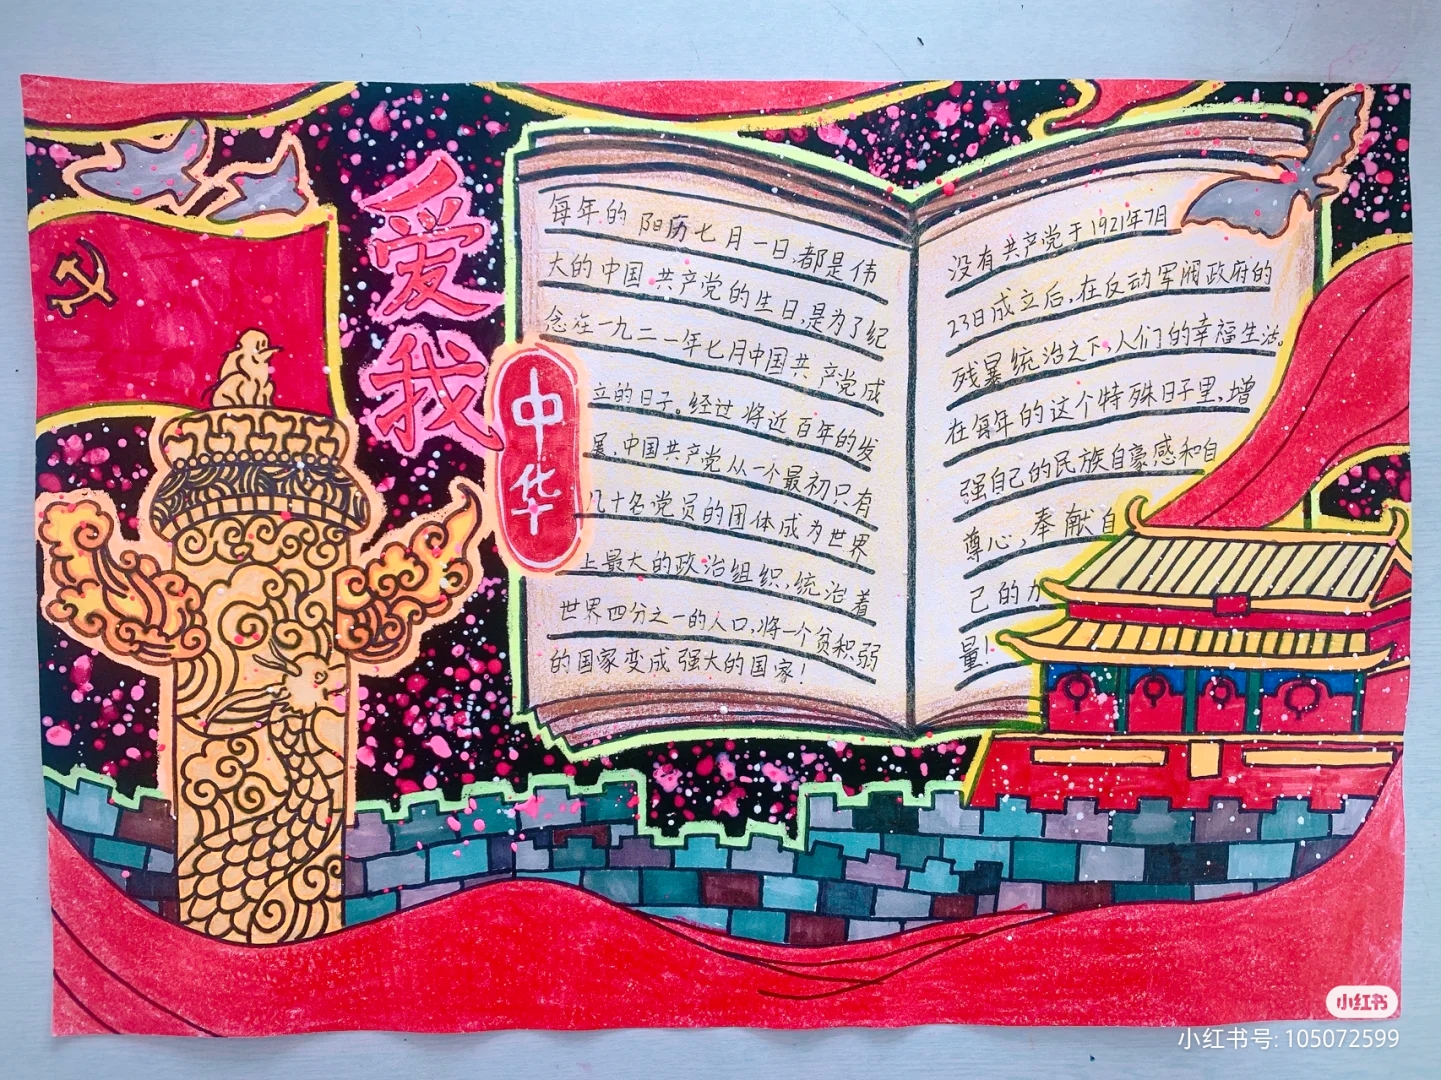 爱我
中华
每年的阳历七月一日,都是伟
大的中国共产党的生日,是为了纪
念在一九二一年七月中国共产党成
立的日子。经过将近百年的发
展,中国共产党从一个最初只有
几十名党员的团体成为世界
上最大的政治组织,统治着
世界四分之一的人口,将一个贫积弱
的国家变成强大的国家!
没有共产党于1921年7月
23日成立后,在反动军阀政府的
残暴统治之下,人们的幸福生活。
在每年的这个特殊日子里,增
强自己的民族自豪感和自
尊心,奉献自
己的力
量!
小红书
小红书号: 105072599